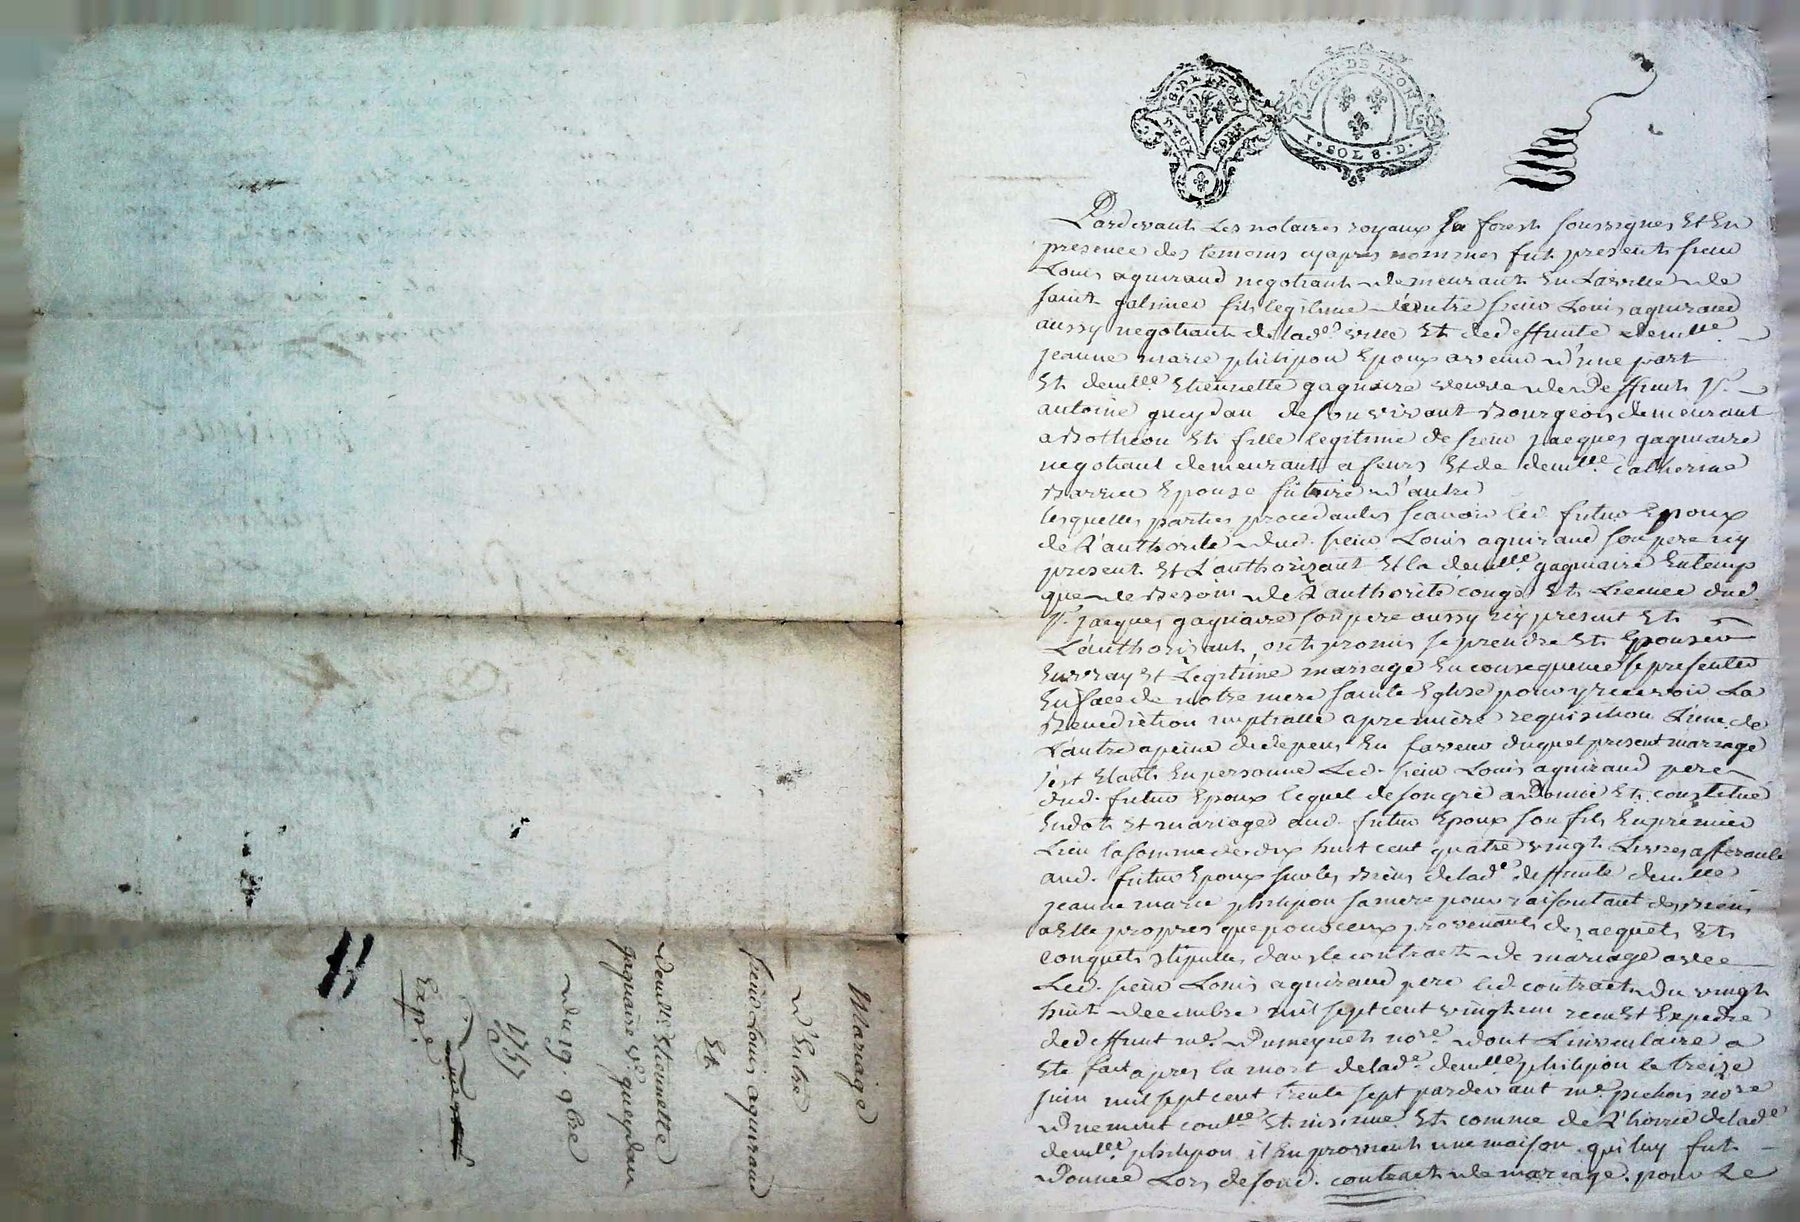 G. DE LYON
DEUX SOLS
GEN. DE LYON
1. SOL 8. D.
Pardevant Les notaires royaux En forest soussignes Et En
presence des temoins cy apres nommes fut present sieur
Louis aguiraud negotiant demeurant En La ville de
saint galmier fils legitime d'Entre sieur Louis aguiraud
aussy negotiant de lad.e ville Et de deffunte demlle
jeanne marie philipon Epoux avenir d'une part
Et demlle Etiennette gagnaire veuve de deffunt Sr.
antoine gueydan de son vivant Bourgeois demeurant
a Botheon Et fille legitime de sieur jacques gagnaire
negotiant demeurant a feurs Et de demlle catherine
Barrieu Epouse future d'autre
lesquelles parties procedantes scavoir led. futur Epoux
de L'authorité dud. sieur Louis aguiraud son pere icy
present Et L'authorisant Et la demlle gagnaire En temp
que de Besoin de L'authorité congé Et Licence dud.
Sr. jacques gagnaire son pere aussy icy present Et
L'authorisant, ont promis se prendre Et Epouser
En vray Et Legitime mariage En consequence se presenter
En face de notre mere sainte Eglise pour y recevoir La
Benediction nuptialle a premiere requisition L'une de
L'autre a peine de depens En faveur duquel present mariage
s'est Etably En personne Led. sieur Louis aguiraud pere
dud. futur Epoux lequel de son gré a Donné Et constitué
En dot Et mariage aud. futur Epoux son fils En premier
Lieu la somme de dix huit cent quatre vingt Livres afferante
aud. futur Epoux sur les Biens de lad.e deffunte demlle
jeanne marie philipon sa mere pour raison tant des Biens
a Elle propres que pour ceux provenants des acquets Et
conquets stipulés dans le contract de mariage avec
Led. sieur Louis aguiraud pere led. contract du vingt
huit decembre mil sept cent vingt un receu Et Expedié
de deffunt me. Dumeynet nore. dont L'inventaire a
Eté fait apres la mort de lad.e demlle philipon le treize
juin mil sept cent trente sept pardevant me. pichois nore
Et comme de L'hoirie de lad.e
demlle philipon il En provient une maison qui luy fut
Donnée Lors de sond. contract de mariage pour Le
Mariage
D'Entre
sieur Louis aguiraud
Et
demlle Etiennette
gagnaire ve. gueydan
du 19. 9bre
1757
Exp.e